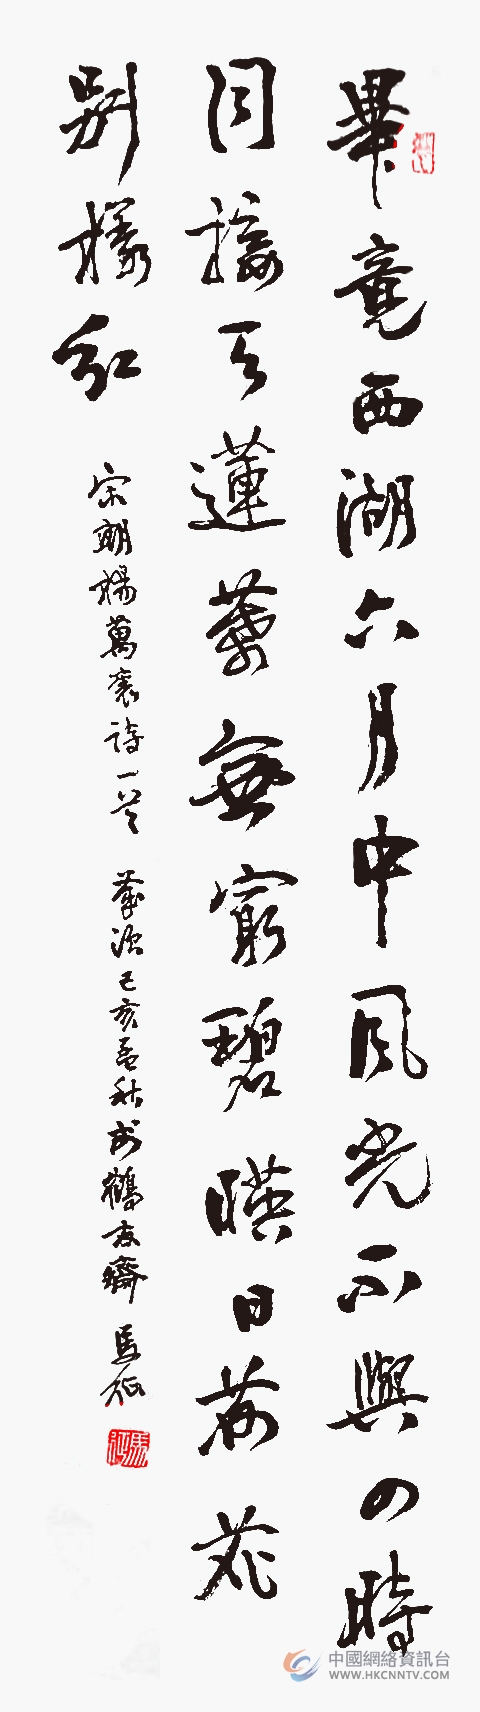 畢竟西湖六月中風光不與四時
同接天蓮葉無窮碧暎日荷花
别樣紅
宋朝楊萬裏詩一首 歲次己亥孟秋於鶴友齋 馬征
馬征
中國網絡資訊台
WWW.HKCNNTV.COM